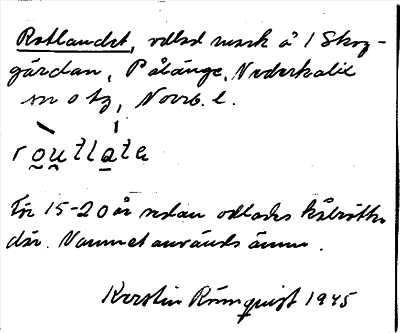 Rotlandet, odlad mark å 1 Skog-
gårdan, Pålänge, Nederkalix
sn o tg, Norrb. l.
routlate
För 15-20 år sedan odlades kålrötter
där. Namnet används ännu.
Kerstin Rönnquist 1945